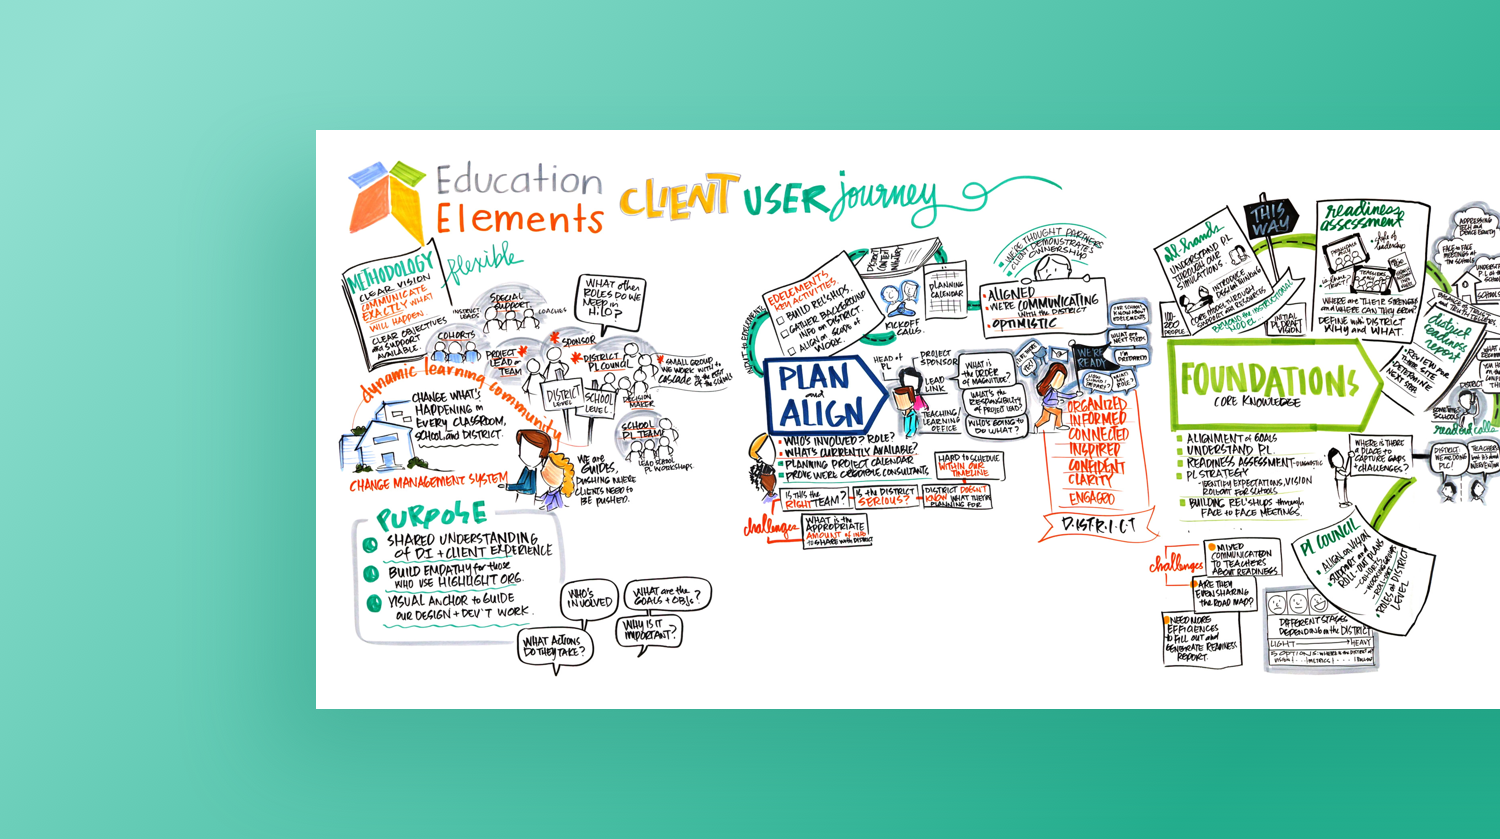 Education
Elements
CLIENT USER journey
METHODOLOGY
CLEAR VISION
COMMUNICATE
EXACTLY WHAT
WILL HAPPEN
CLEAR OBJECTIVES
and SUPPORT
AVAILABLE.
flexible
SPECIAL
SUPPORT
INSTRUCT.
LEADS
COACHES
COHORTS
WHAT other
ROLES DO WE
NEED in
PROJECT
LEAD or
TEAM
SPONSOR
DISTRICT
PL COUNCIL
SMALL GROUP
WE WORK with to
CASCADE to the rest
of the schools
DISTRICT
LEVEL
SCHOOL
LEVEL
DECISION
MAKER
SCHOOL
PL TEAM
LEAD SCHOOL
PL WORKSHOPS
dynamic learning community
CHANGE WHAT'S
HAPPENING in
EVERY CLASSROOM,
SCHOOL and DISTRICT.
CHANGE MANAGEMENT SYSTEM
WE ARE
GUIDES,
PUSHING WHERE
CLIENTS NEED to
BE PUSHED.
PURPOSE
SHARED UNDERSTANDING
of DI + CLIENT EXPERIENCE
BUILD EMPATHY for those
WHO USE HIGHLIGHT ORG.
VISUAL ANCHOR to GUIDE
OUR DESIGN + DEV'T WORK.
WHO'S
INVOLVED
WHAT are the
GOALS + OBJs?
WHY IS IT
IMPORTANT?
WHAT ACTIONS
DO THEY TAKE?
EDELEMENTS
KEY ACTIVITIES.
BUILD REL'SHIPS
GATHER BACKGROUND
INFO on DISTRICT.
ALIGN on SCOPE of
WORK.
DISTRICT
CONTEXT
INVENTORY
KICKOFF
CALLS.
PLANNING
CALENDAR
WE'RE THOUGHT PARTNERS
CLIENT DEMONSTRATES
OWNERSHIP
ALIGNED
WE'RE COMMUNICATING
WITH the DISTRICT
OPTIMISTIC
PLAN
and
ALIGN
HEAD of
PL
PROJECT
SPONSOR
LEAD
LINK
TEACHING
LEARNING
OFFICE
WHAT is
the ORDER
of MAGNITUDE?
WHAT'S the
RESPONSIBILITY
of PROJECT LEAD?
WHO'S GOING to
DO WHAT?
WE'RE
READY
WHAT are
NEXT STEPS
I'M
PREPARED
WHAT'S
MY ROLE?
ORGANIZED
INFORMED
CONNECTED
INSPIRED
CONFIDENT
CLARITY
ENGAGED
DISTRICT
WHO'S INVOLVED? ROLE?
WHAT'S CURRENTLY AVAILABLE?
PLANNING PROJECT CALENDAR
PROVE WE'RE CREDIBLE CONSULTANTS
HARD to SCHEDULE
WITHIN OUR
TIMELINE
challenges
IS THIS the
RIGHT TEAM?
IS the DISTRICT
SERIOUS?
DISTRICT DOESN'T
KNOW WHAT THEY'RE
PLANNING FOR
WHAT IS the
APPROPRIATE
AMOUNT of INFO
to SHARE with DISTRICT
all hands
UNDERSTAND PL
THROUGH OUR
SIMULATIONS.
INTRODUCE
DESIGN THINKING
CORE FOUR THROUGH
BEYOND the INSTRUCTIONAL
MODEL
100-
200
PEOPLE
INITIAL
PL DRAFT
VISION
THIS
WAY
readiness
assessment
style of
leadership
WHERE are THEIR STRENGTHS
and WHERE CAN THEY GROW?
DEFINE with DISTRICT
WHY and WHAT.
ADDRESSING
TECH and
DEVICE EQUITY
FACE to FACE
MEETINGS at
the SCHOOLS
district
readiness
report
FOUNDATIONS
CORE KNOWLEDGE
ALIGNMENT of GOALS
UNDERSTAND PL.
READINESS ASSESSMENT-DIAGNOSTIC
PL STRATEGY
IDENTIFY EXPECTATIONS, VISION
ROLLOUT FOR SCHOOLS
BUILDING REL'SHIPS through
FACE to FACE MEETINGS.
WHERE is THERE
a PLACE to
CAPTURE GAPS
+ CHALLENGES?
readout calls
DISTRICT
WE ARE DOING
PLC!
challenges
MIXED
COMMUNICATION
TO TEACHERS
ABOUT READINESS.
ARE THEY
EVEN SHARING
the ROAD MAP?
NEED MORE
EFFICIENCIES
to FILL OUT and
GENERATE READINESS
REPORT.
DIFFERENT STAGES
DEPENDING on the DISTRICT
LIGHT
HEAVY
PL COUNCIL
ALIGN on VISION
SUPPORT and
ROLL-OUT PLANS
COHORTS
ROLES at DISTRICT
LEVEL